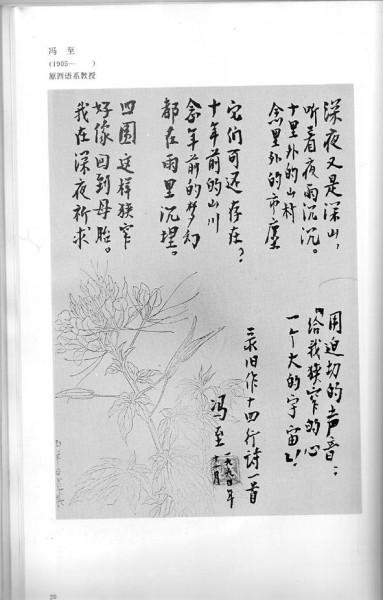 冯 至
(1905— )
原西语系教授
深夜又是深山,
听着夜雨沉沉。
十里外的山村
念里外的市廛
它们可还存在?
十年前的山川
念年前的梦幻
都在雨里沉埋。
四围这样狭窄
好像回到母胎。
我在深夜祈求
用迫切的声音:
“给我狭窄的心
一个大的宇宙!”
录旧作十四行诗一首
冯至
一九九〇年
20